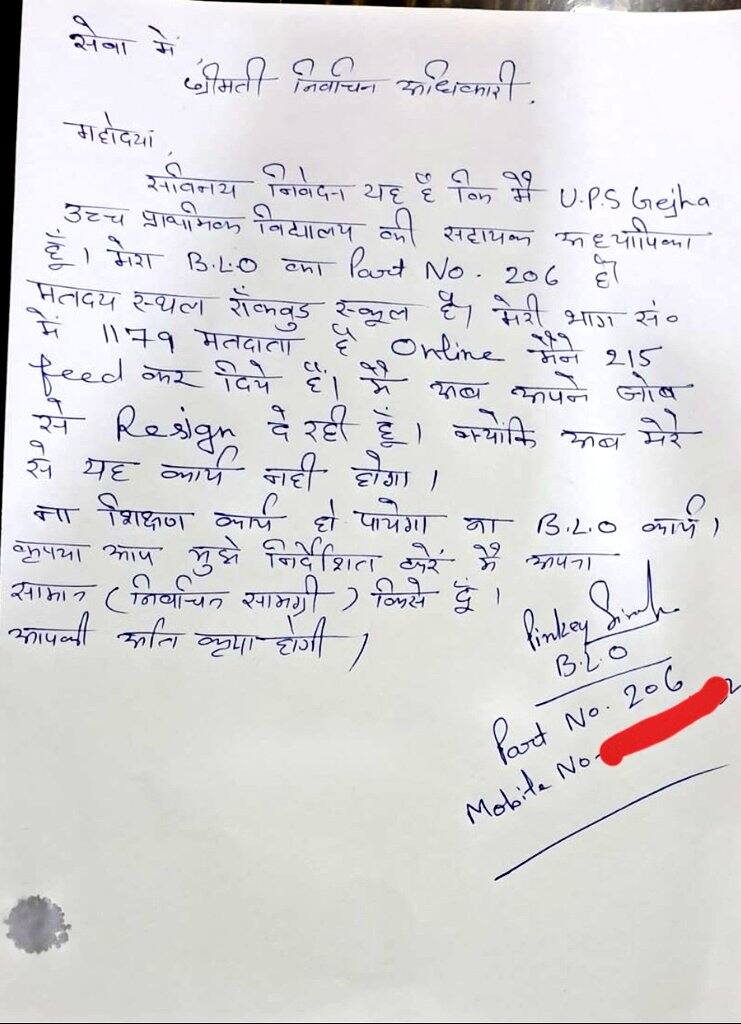 सेवा में,
श्रीमती निर्वाचन अधिकारी.
महोदया,
सविनय निवेदन यह है कि मैं U.P.S Gejha
उच्च प्राथमिक विद्यालय की सहायक अध्यापिका
हूँ। मेरा B.L.O का Part No. 206 है।
मतदय स्थल रॉकवुड स्कूल है। मेरी भाग सं०
में 1179 मतदाता है Online मैंने 215
feed कर दिये हैं। मैं अब अपने जोब
से Resign दे रही हूँ। क्योंकि अब मेरे
से यह कार्य नही होगा।
ना शिक्षण कार्य हो पायेगा ना B.L.O कार्य।
कृपया आप मुझे निर्देशित करें मैं अपना
सामान (निर्वाचन सामग्री) किसे दूँ।
आपकी अति कृपा होगी।
Pinkey Singh
B.L.O
Part No. 206
Mobile No-